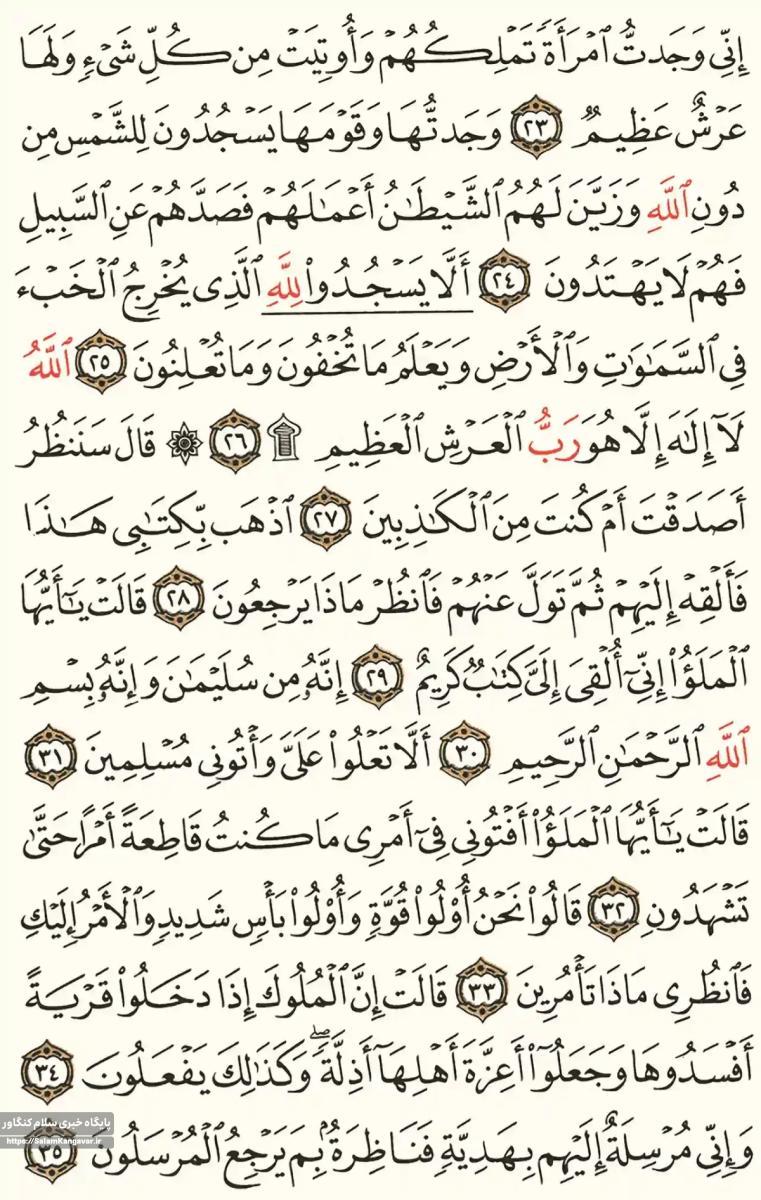 إِنِّي وَجَدتُّ ٱمۡرَأَةٗ تَمۡلِكُهُمۡ وَأُوتِيَتۡ مِن كُلِّ شَيۡءٖ وَلَهَا
عَرۡشٌ عَظِيمٞ ٢٣ وَجَدتُّهَا وَقَوۡمَهَا يَسۡجُدُونَ لِلشَّمۡسِ مِن
دُونِ ٱللَّهِ وَزَيَّنَ لَهُمُ ٱلشَّيۡطَٰنُ أَعۡمَٰلَهُمۡ فَصَدَّهُمۡ عَنِ ٱلسَّبِيلِ
فَهُمۡ لَا يَهۡتَدُونَ ٢٤ أَلَّاۤ يَسۡجُدُواْۤ لِلَّهِ ٱلَّذِي يُخۡرِجُ ٱلۡخَبۡءَ
فِي ٱلسَّمَٰوَٰتِ وَٱلۡأَرۡضِ وَيَعۡلَمُ مَا تُخۡفُونَ وَمَا تُعۡلِنُونَ ٢٥ ٱللَّهُ
لَآ إِلَٰهَ إِلَّا هُوَ رَبُّ ٱلۡعَرۡشِ ٱلۡعَظِيمِ ۩ ٢٦ ۞ قَالَ سَنَنظُرُ
أَصَدَقۡتَ أَمۡ كُنتَ مِنَ ٱلۡكَٰذِبِينَ ٢٧ ٱذۡهَب بِّكِتَٰبِي هَٰذَا
فَأَلۡقِهۡ إِلَيۡهِمۡ ثُمَّ تَوَلَّ عَنۡهُمۡ فَٱنظُرۡ مَاذَا يَرۡجِعُونَ ٢٨ قَالَتۡ يَٰٓأَيُّهَا
ٱلۡمَلَؤُاْ إِنِّيٓ أُلۡقِيَ إِلَيَّ كِتَٰبٞ كَرِيمٌ ٢٩ إِنَّهُۥ مِن سُلَيۡمَٰنَ وَإِنَّهُۥ بِسۡمِ
ٱللَّهِ ٱلرَّحۡمَٰنِ ٱلرَّحِيمِ ٣٠ أَلَّا تَعۡلُواْ عَلَيَّ وَأۡتُونِي مُسۡلِمِينَ ٣١
قَالَتۡ يَٰٓأَيُّهَا ٱلۡمَلَؤُاْ أَفۡتُونِي فِيٓ أَمۡرِي مَا كُنتُ قَاطِعَةً أَمۡرًا حَتَّىٰ
تَشۡهَدُونِ ٣٢ قَالُواْ نَحۡنُ أُوْلُواْ قُوَّةٖ وَأُوْلُواْ بَأۡسٖ شَدِيدٖ وَٱلۡأَمۡرُ إِلَيۡكِ
فَٱنظُرِي مَاذَا تَأۡمُرِينَ ٣٣ قَالَتۡ إِنَّ ٱلۡمُلُوكَ إِذَا دَخَلُواْ قَرۡيَةً
أَفۡسَدُوهَا وَجَعَلُوٓاْ أَعِزَّةَ أَهۡلِهَآ أَذِلَّةٗۖ وَكَذَٰلِكَ يَفۡعَلُونَ ٣٤
وَإِنِّي مُرۡسِلَةٌ إِلَيۡهِم بِهَدِيَّةٖ فَنَاظِرَةُۢ بِمَ يَرۡجِعُ ٱلۡمُرۡسَلُونَ ٣٥
پایگاه خبری سلام کنگاور
https://SalamKangavar.ir